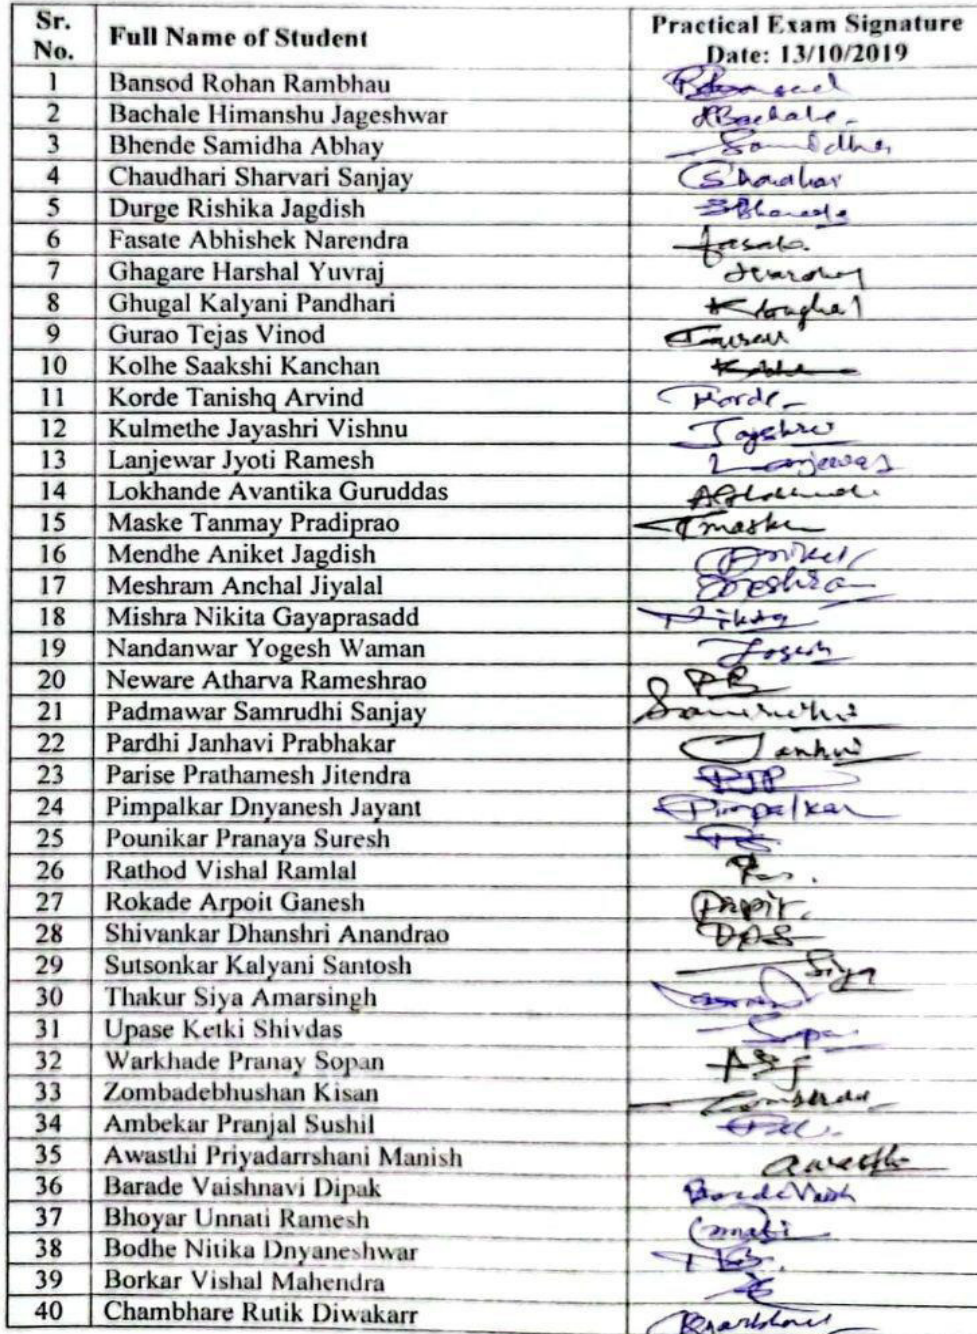 Sr. No. Full Name of Student Practical Exam Signature Date: 13/10/2019
1 Bansod Rohan Rambhau
2 Bachale Himanshu Jageshwar ABachale.
3 Bhende Samidha Abhay Samidha
4 Chaudhari Sharvari Sanjay
5 Durge Rishika Jagdish
6 Fasate Abhishek Narendra fasate.
7 Ghagare Harshal Yuvraj
8 Ghugal Kalyani Pandhari
9 Gurao Tejas Vinod
10 Kolhe Saakshi Kanchan
11 Korde Tanishq Arvind
12 Kulmethe Jayashri Vishnu
13 Lanjewar Jyoti Ramesh Lanjewar
14 Lokhande Avantika Guruddas
15 Maske Tanmay Pradiprao Tmaske
16 Mendhe Aniket Jagdish Aniket
17 Meshram Anchal Jiyalal
18 Mishra Nikita Gayaprasadd
19 Nandanwar Yogesh Waman Yogesh
20 Neware Atharva Rameshrao
21 Padmawar Samrudhi Sanjay Samrudhi
22 Pardhi Janhavi Prabhakar
23 Parise Prathamesh Jitendra PJP
24 Pimpalkar Dnyanesh Jayant Pimpalkar
25 Pounikar Pranaya Suresh PS
26 Rathod Vishal Ramlal
27 Rokade Arpoit Ganesh
28 Shivankar Dhanshri Anandrao DAS
29 Sutsonkar Kalyani Santosh Siya
30 Thakur Siya Amarsingh
31 Upase Ketki Shivdas
32 Warkhade Pranay Sopan
33 Zombadebhushan Kisan
34 Ambekar Pranjal Sushil
35 Awasthi Priyadarrshani Manish Awasthi
36 Barade Vaishnavi Dipak
37 Bhoyar Unnati Ramesh
38 Bodhe Nitika Dnyaneshwar
39 Borkar Vishal Mahendra
40 Chambhare Rutik Diwakarr